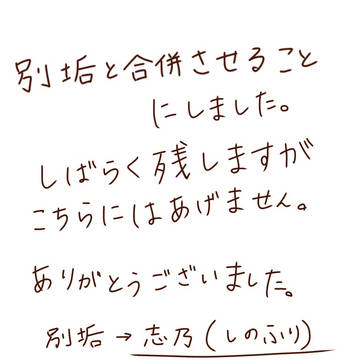 別垢と合併させること
にしました。
しばらく残しますが
こちらにはあげません。
ありがとうございました。
別垢→志乃(しのふり)